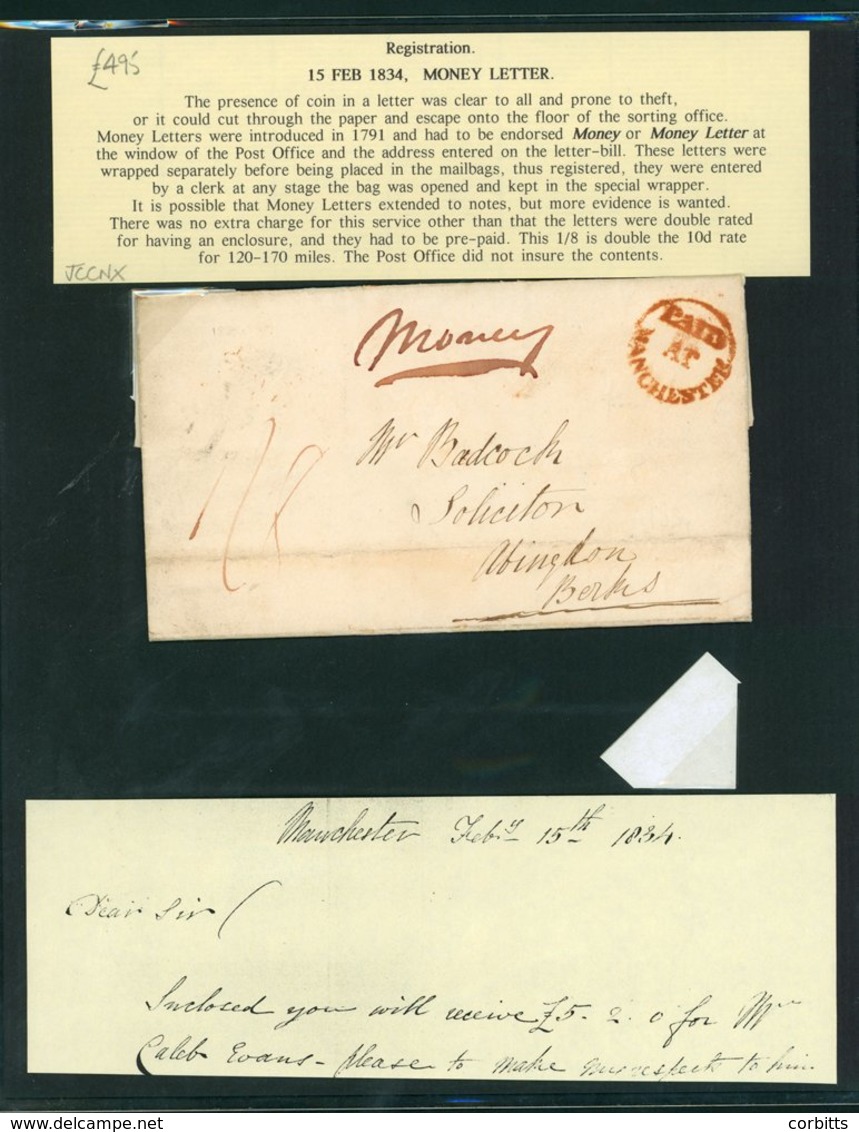 £495
Registration.
15 FEB 1834, MONEY LETTER.
The presence of coin in a letter was clear to all and prone to theft,
or it could cut through the paper and escape onto the floor of the sorting office.
Money Letters were introduced in 1791 and had to be endorsed Money or Money Letter at
the window of the Post Office and the address entered on the letter-bill. These letters were
wrapped separately before being placed in the mailbags, thus registered, they were entered
by a clerk at any stage the bag was opened and kept in the special wrapper.
It is possible that Money Letters extended to notes, but more evidence is wanted.
There was no extra charge for this service other than that the letters were double rated
for having an enclosure, and they had to be pre-paid. This 1/8 is double the 10d rate
for 120-170 miles. The Post Office did not insure the contents.
JCCNX
Money
PAID
AT
MANCHESTER
1/8
Mr Badcock
Solicitor
Abingdon
Berks
Manchester Feby 15th 1834.
Dear Sir
Inclosed you will receive £5-2-0 for Mr
Caleb Evans - please to make our respects to him
www.delcampe.net
corbitts